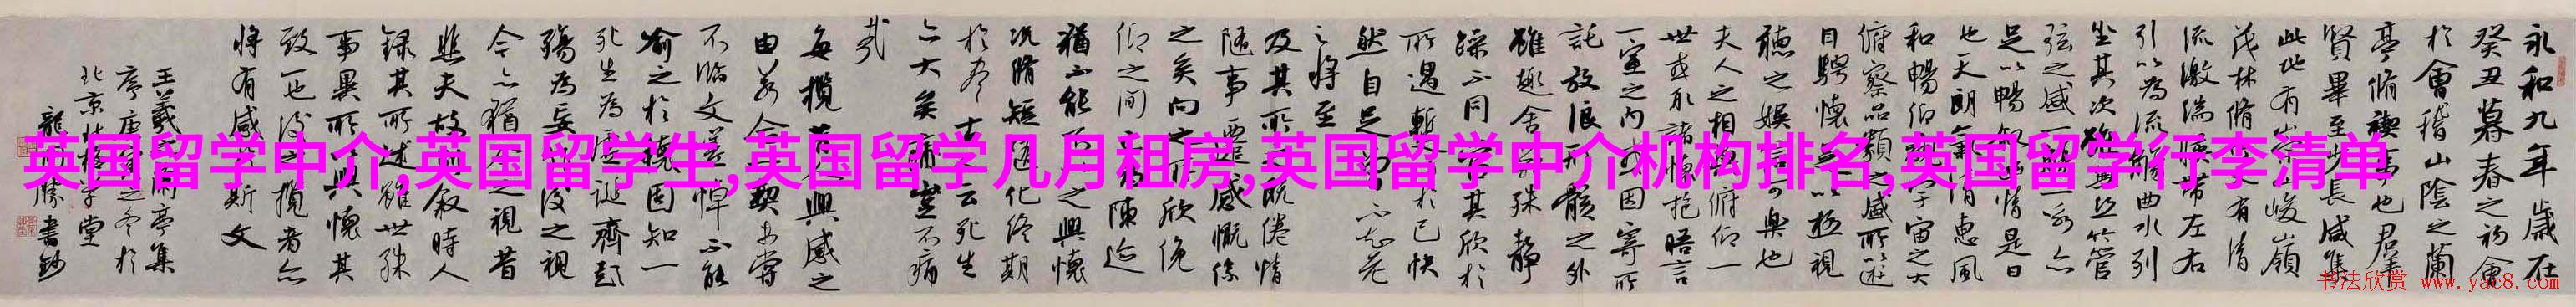 英国留学中介,英国留学生,英国留学几月租房,英国留学中介机构排名,英国留学行李清单
永和九年歲在
癸丑暮春之初會
於會稽山陰之蘭
亭脩禊事也群
賢畢至少長咸集
此地有崇山峻嶺
茂林脩竹又有清
流激湍暎帶左右
引以為流觴曲水列
坐其次雖無絲竹管
弦之盛一觴一詠亦
足以暢敘幽情是日
也天朗氣清惠風
和暢仰觀宇宙之大
俯察品類之盛所以遊
目騁懷足以極視
聽之娛信可樂也
夫人之相與俯仰一
世或取諸懷抱晤言
一室之內或因寄所
託放浪形骸之外
雖趣舍萬殊靜
躁不同當其欣於
所遇暫得於己快
然自足不知老
之將至
及其所之既倦情
隨事遷感慨係
之矣向之所欣俛
仰之間以為陳迹
猶不能不以之興懷
況脩短隨化終期
於盡古人云死生
亦大矣豈不痛
哉
每攬昔人興感之
由若合一契未嘗
不臨文嗟悼不能
喻之於懷固知一
死生為虛誕齊彭
殤為妄作後之視
今亦猶今之視昔
悲夫故列敘時人
錄其所述雖世殊
事異所以興懷其
致一也後之攬者亦
將有感於斯文
王羲之蘭亭集
序庚之冬於
北京學堂
龍勝書鈔
书法欣赏 www.yac8.com